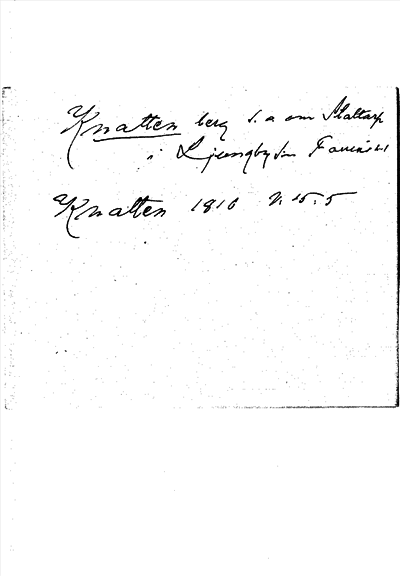 Knatten berg s. a om Slättarp
i Ljungby sn Faurås hd
Knatten 1816 V. 15. 5